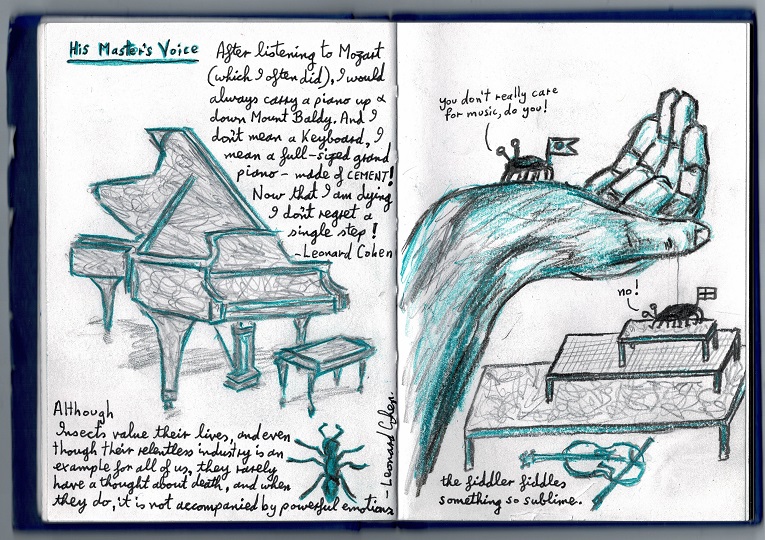 His Master's Voice
After listening to Mozart
(which I often did), I would
always carry a piano up &
down Mount Baldy. And I
don't mean a Keyboard, I
mean a full-sized grand
piano - made of CEMENT!
Now that I am dying
I don't regret a
single step!
- Leonard Cohen
Although
Insects value their lives, and even
though their relentless industry is an
example for all of us, they rarely
have a thought about death, and when
they do, it is not accompanied by powerful emotions
- Leonard Cohen.
you don't really care
for music, do you!
no!
the fiddler fiddles
something so sublime.